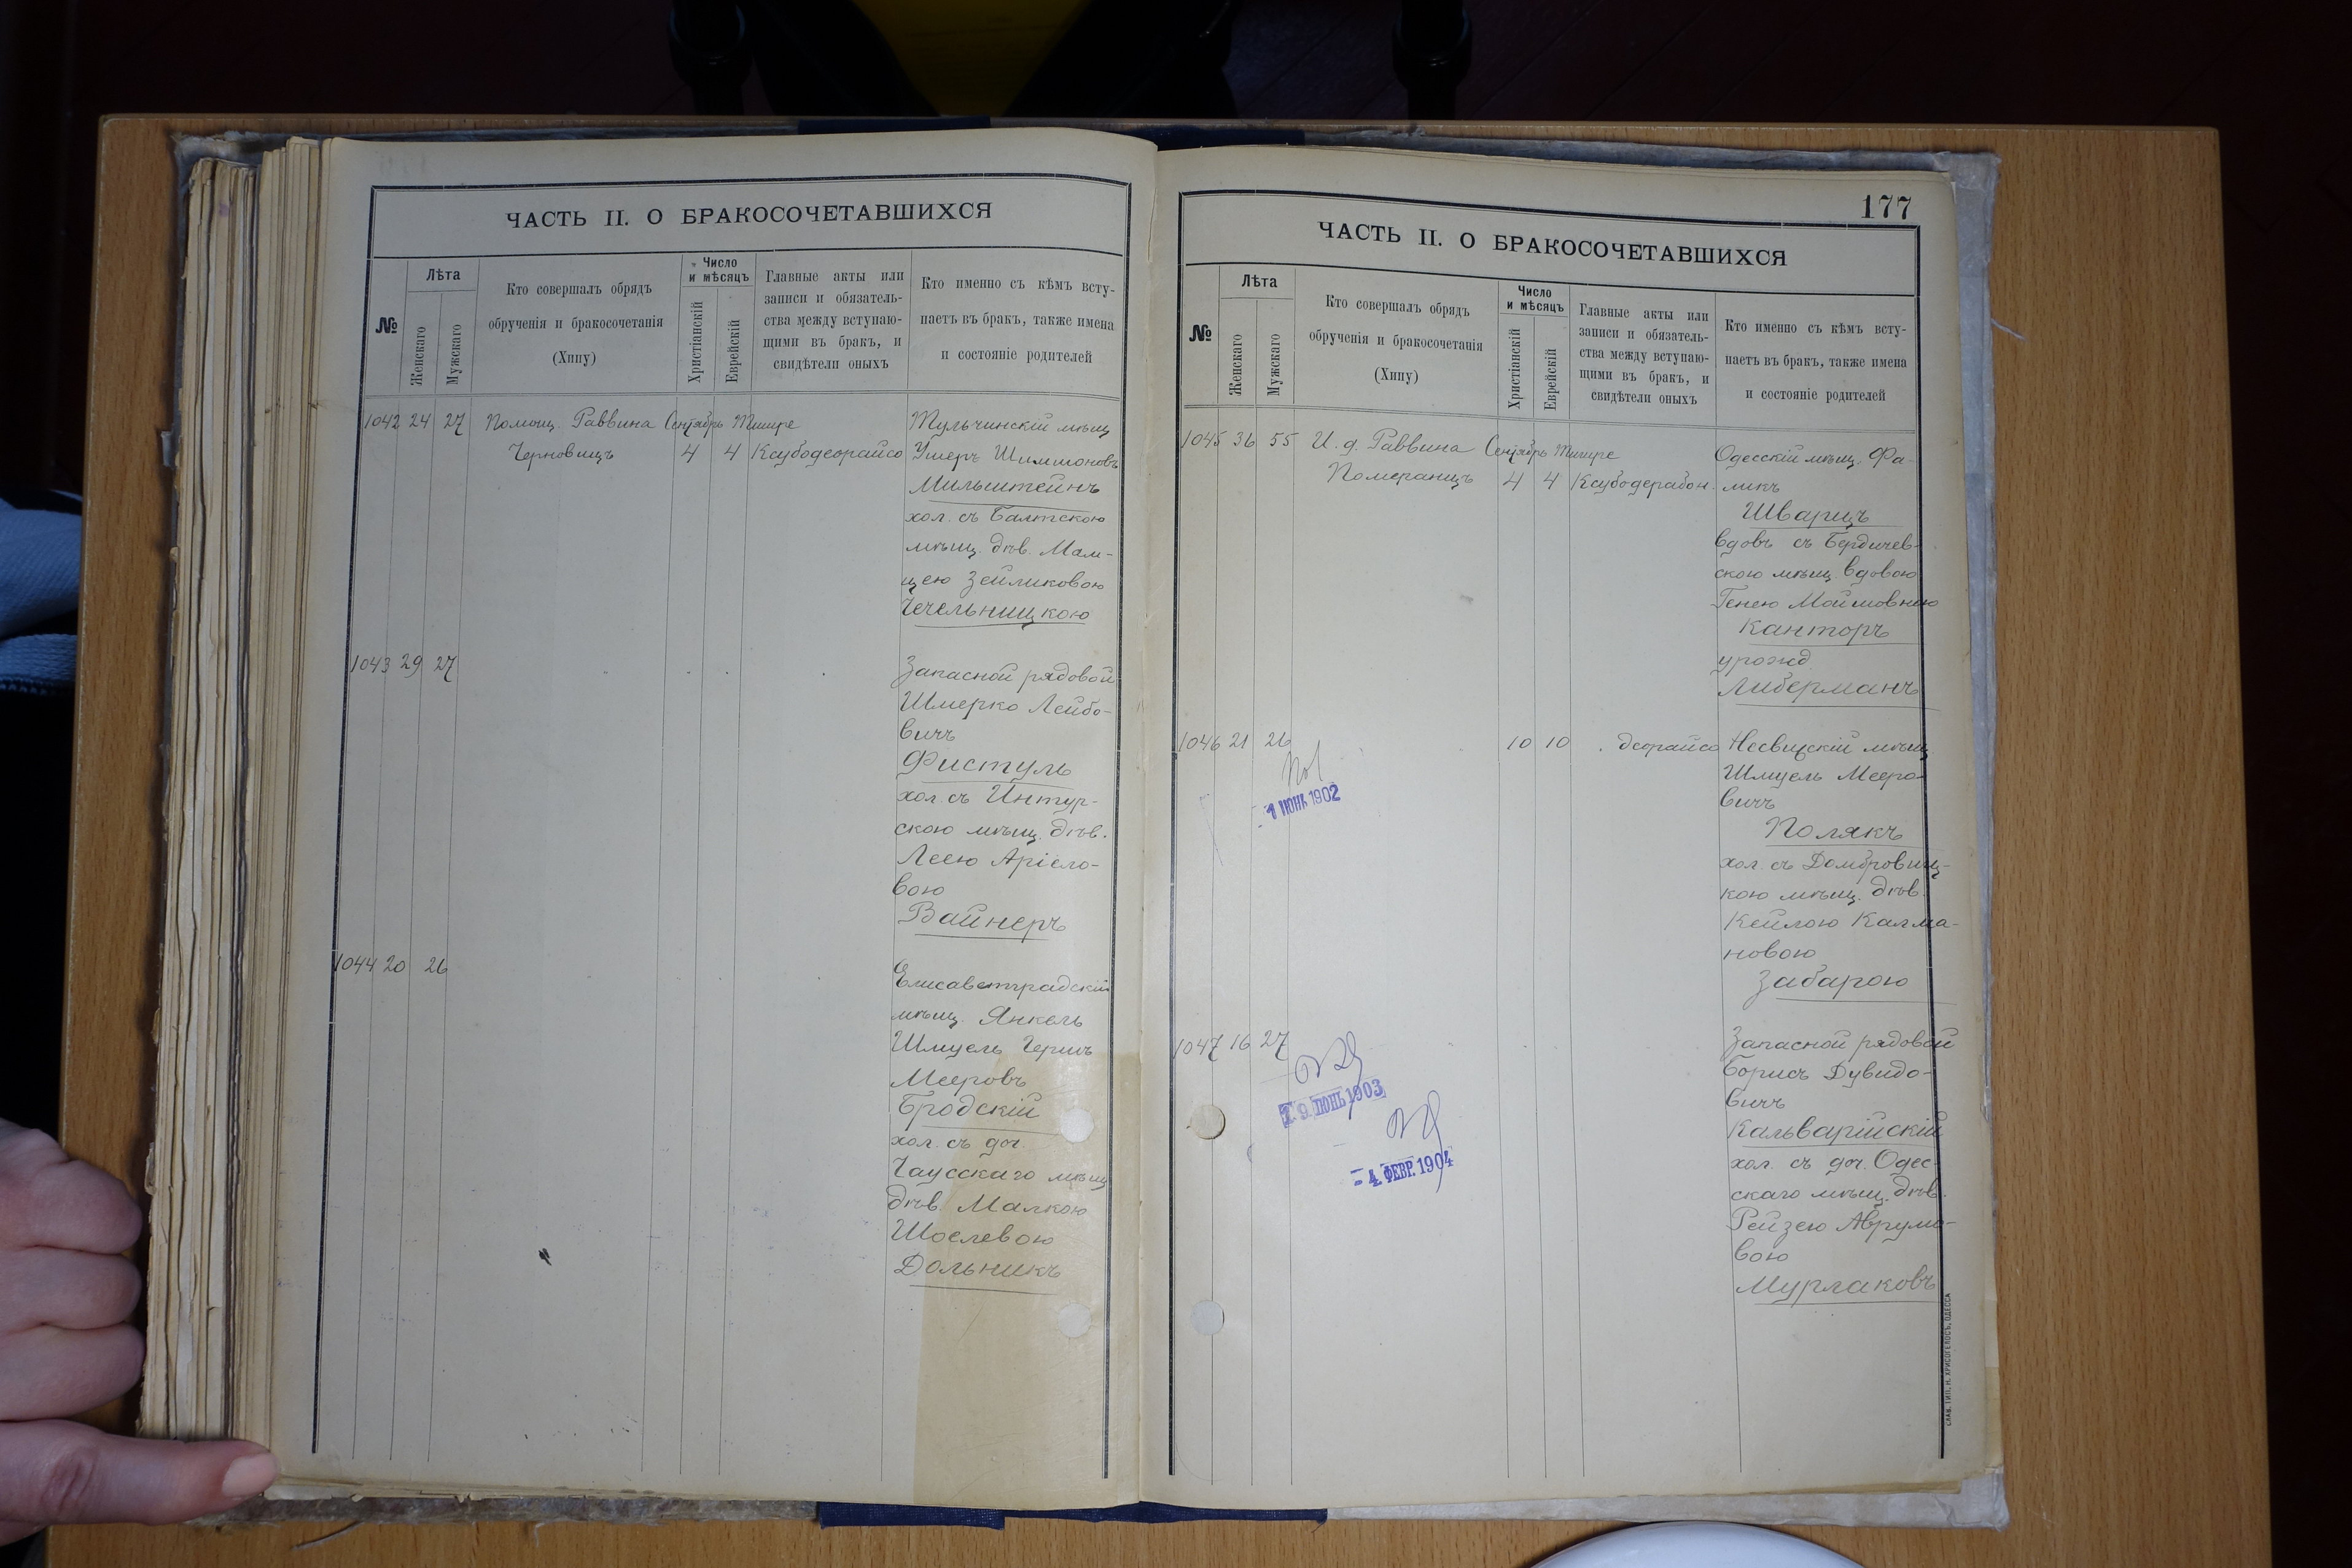 ЧАСТЬ II. О БРАКОСОЧЕТАВШИХСЯ
№
Лѣта
Женскаго
Мужскаго
Кто совершалъ обрядъ
обрученія и бракосочетанія
(Хипу)
Число
и мѣсяцъ
Христіанскій
Еврейскій
Главные акты или
записи и обязатель-
ства между вступаю-
щими въ бракъ, и
свидѣтели оныхъ
Кто именно съ кѣмъ всту-
паетъ въ бракъ, также имена
и состояніе родителей
1042 24 27 Помощ. Раввина Сентябрь Тишре Тульчинскій мѣщ
Черновицъ 4 4 Ксубодеорайсо Умеръ Шлимоновъ
Мильштейнъ
хол. съ Балтскою
мѣщ. дѣв. Мам-
цею Зейликовою
Чечельницкою
1043 29 27 Запасной рядовой
Шмерко Лейбо-
вичъ
Фистуль
хол. съ Интур-
скою мѣщ. дѣв.
Леею Аріело-
вою
Вайнеръ
1044 20 26 Елисаветградскій
мѣщ. Янкель
Шмуель Гершъ
Мееровъ
Бродскій
хол. съ доч.
Чаусскаго мѣщ
дѣв. Малкою
Шоелевою
Дольникъ
177
ЧАСТЬ II. О БРАКОСОЧЕТАВШИХСЯ
№
Лѣта
Женскаго
Мужскаго
Кто совершалъ обрядъ
обрученія и бракосочетанія
(Хипу)
Число
и мѣсяцъ
Христіанскій
Еврейскій
Главные акты или
записи и обязатель-
ства между вступаю-
щими въ бракъ, и
свидѣтели оныхъ
Кто именно съ кѣмъ всту-
паетъ въ бракъ, также имена
и состояніе родителей
1045 36 55 И. д. Раввина Сентябрь Тишре Одесскій мѣщ. Фа-
Померанцъ 4 4 Ксубодерабон. ликъ
Шварцъ
вдовъ съ Бердичев-
скою мѣщ. вдовою
Генею Мошковною
Канторъ
урожд.
Либерманъ
1046 21 26 10 10 деорайсо Несвижскій мѣщ.
Шмуель Мееро-
вичъ
Полякъ
хол. съ Домбровиц-
кою мѣщ. дѣв.
Кейлою Калма-
новою
Забарою
- 1 ІЮНЬ 1902
1047 16 27 Запасной рядовой
Борисъ Дувидо-
вичъ
Кальварійскій
хол. съ доч. Одес-
скаго мѣщ. дѣв.
Рейзею Аврумо-
вою
Мурлаковъ
9 ІЮНЬ 1903
- 4 ФЕВР. 1904
СЛАВ. ТИП. Н. ХРИСОГЕЛОСЪ, ОДЕССА